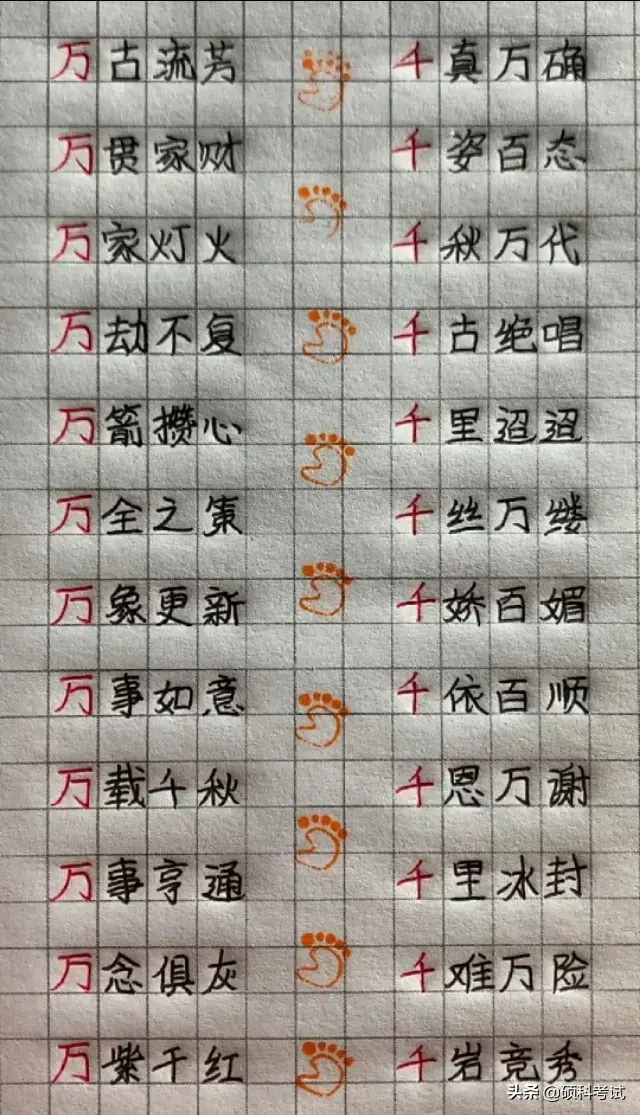 万古流芳 千真万确
万贯家财 千姿百态
万家灯火 千秋万代
万劫不复 千古绝唱
万箭攒心 千里迢迢
万全之策 千丝万缕
万象更新 千娇百媚
万事如意 千依百顺
万载千秋 千恩万谢
万事亨通 千里冰封
万念俱灰 千难万险
万紫千红 千岩竞秀
头条 @硕科考试